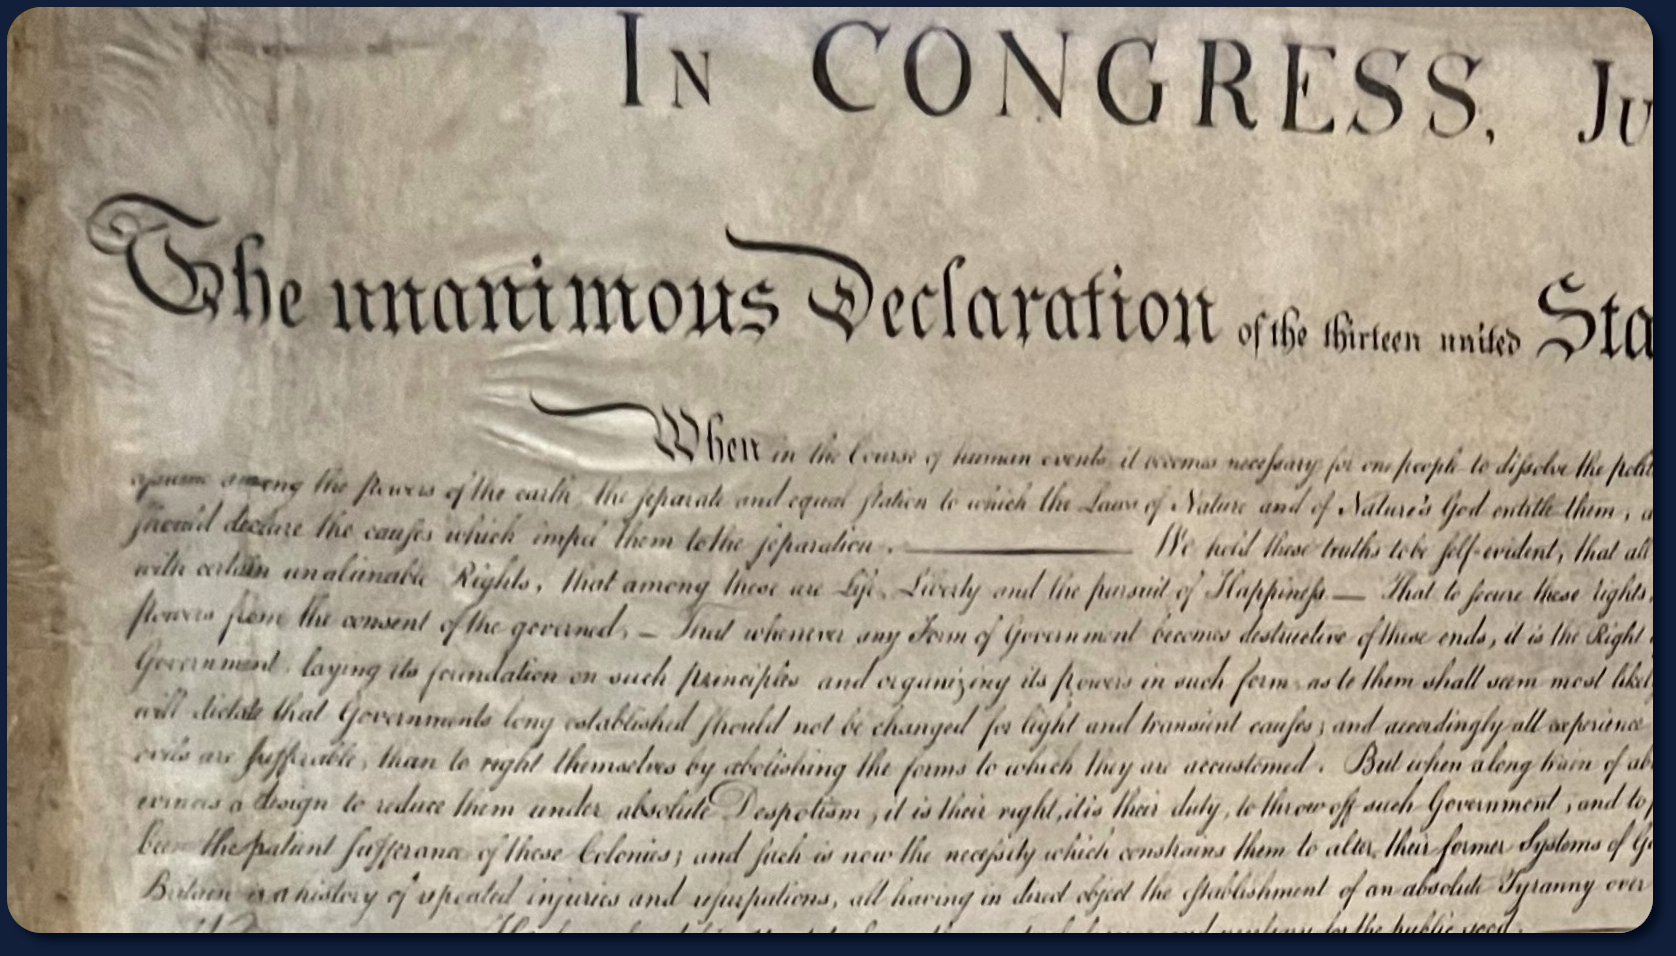 In CONGRESS, Ju
The unanimous Declaration of the thirteen united Sta
When in the Course of human events, it becomes necessary for one people to dissolve the polit
assume among the powers of the earth, the separate and equal station to which the Laws of Nature and of Nature's God entitle them, a
should declare the causes which impel them to the separation. We hold these truths to be self-evident, that all
with certain unalienable Rights, that among these are Life, Liberty and the pursuit of Happiness.— That to secure these rights,
powers from the consent of the governed, — That whenever any Form of Government becomes destructive of these ends, it is the Right
Government, laying its foundation on such principles and organizing its powers in such form, as to them shall seem most likel
will dictate that Governments long established should not be changed for light and transient causes; and accordingly all experience
evils are sufferable, than to right themselves by abolishing the forms to which they are accustomed. But when a long train of ab
evinces a design to reduce them under absolute Despotism, it is their right, it is their duty, to throw off such Government, and to p
been the patient sufferance of these Colonies; and such is now the necessity which constrains them to alter their former Systems of Go
Britain is a history of repeated injuries and usurpations, all having in direct object the establishment of an absolute Tyranny over
for the public good.